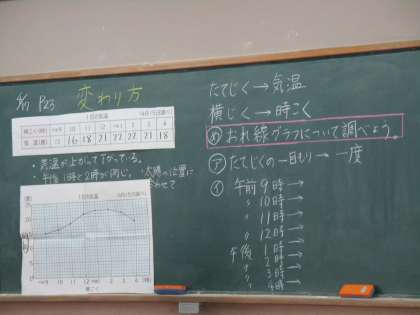 P23 変わり方
1日の気温
時こく(時) 午前9 10 11 12 午後1 2 3 4
気温(度) 15 16 18 21 22 22 21 18
・気温が上がって下がっている。
・午後1時と2時が同じ。
1日の気温
(度)
20
15
10
5
0
午前9 10 11 12 午後1 2 3 4 (時)
時こく
たてじく→気温
横じく→時こく
め おれ線グラフについて調べよう。
ア たてじくの一目もり→一度
イ 午前9時→
〃 10時→
〃 11時→
〃 12時→
午後1時→
〃 2時→
〃 3時→
〃 4時→